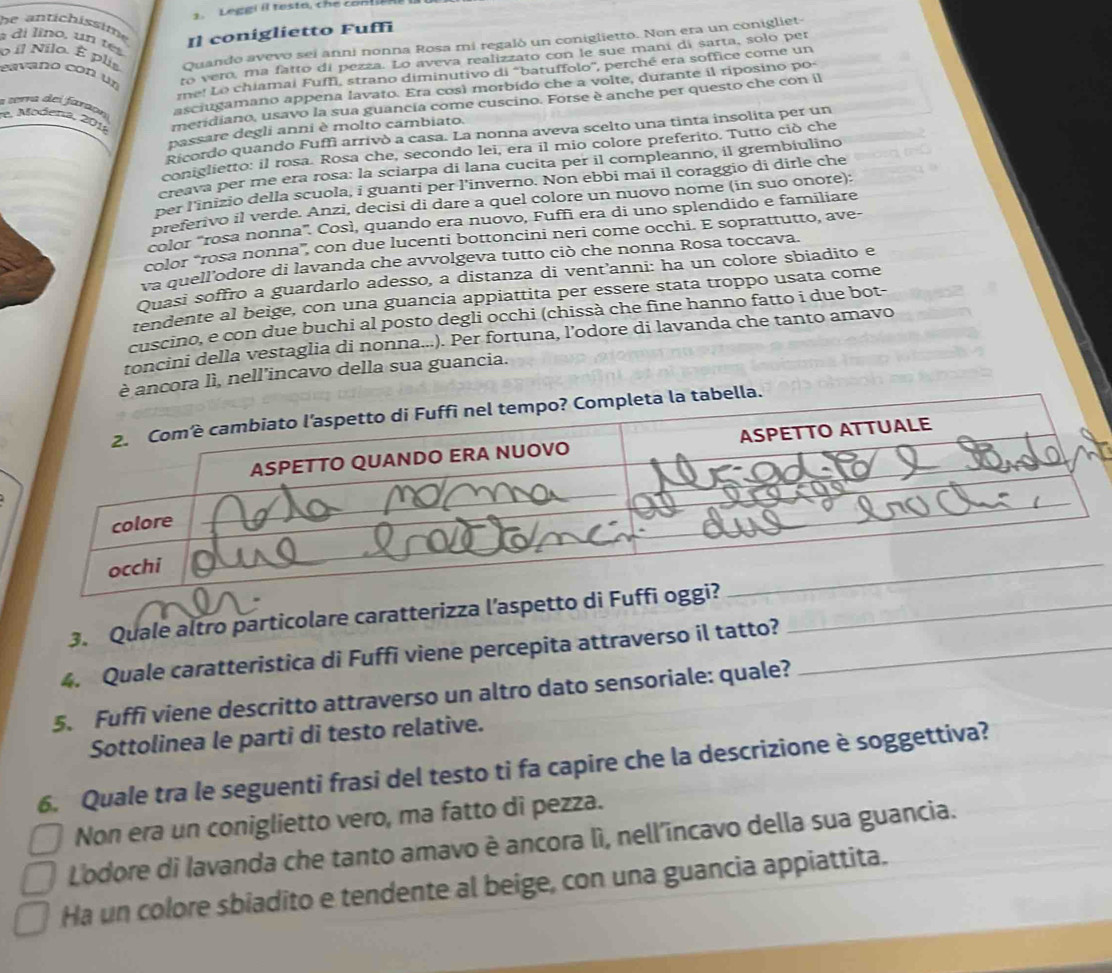 he antichissime
a di lino, un tes
o il Nilo. È plis
eavano con un
a terra dei faraoni
re, Modena, 2018
Leggi il testo, che
Il coniglietto Fuffi
Quando avevo sei anni nonna Rosa mi regalò un coniglietto. Non era un conigliet-
to vero, ma fatto di pezza. Lo aveva realizzato con le sue mani di sarta, solo per
me! Lo chiamai Fuffi, strano diminutivo di "batuffolo", perché era soffice come un
asciugamano appena lavato. Era così morbido che a volte, durante il riposino po-
meridiano, usavo la sua guancia come cuscino. Forse è anche per questo che con il
passare degli anni è molto cambiato.
Ricordo quando Fuffi arrivò a casa. La nonna aveva scelto una tinta insolita per un
coniglietto: il rosa. Rosa che, secondo lei, era il mio colore preferito. Tutto ciò che
creava per me era rosa: la sciarpa di lana cucita per il compleanno, il grembiulino
per l'inizio della scuola, i guanti per l'inverno. Non ebbi mai il coraggio di dirle che
preferivo il verde. Anzi, decisi di dare a quel colore un nuovo nome (in suo onore):
color "rosa nonna". Così, quando era nuovo, Fuffi era di uno splendido e familiare
color "rosa nonna", con due lucenti bottoncini neri come occhi. E soprattutto, ave-
va quell'odore di lavanda che avvolgeva tutto ciò che nonna Rosa toccava.
Quasi soffro a guardarlo adesso, a distanza di vent'anni: ha un colore sbiadito e
tendente al beige, con una guancia appiattita per essere stata troppo usata come
cuscino, e con due buchi al posto degli occhi (chissà che fine hanno fatto i due bot-
toncini della vestaglia di nonna...). Per fortuna, l'odore di lavanda che tanto amavo
è ancora lì, nell'incavo della sua guancia.
2. Com'è cambiato l'aspetto di Fuffi nel tempo? Completa la tabella.
ASPETTO QUANDO ERA NUOVO
ASPETTO ATTUALE
colore
occhi
due
due
3. Quale altro particolare caratterizza l'aspetto di Fuffi oggi?
4. Quale caratteristica di Fuffi viene percepita attraverso il tatto?
5. Fuffi viene descritto attraverso un altro dato sensoriale: quale?
Sottolinea le parti di testo relative.
6. Quale tra le seguenti frasi del testo ti fa capire che la descrizione è soggettiva?
Non era un coniglietto vero, ma fatto di pezza.
L'odore di lavanda che tanto amavo è ancora lì, nell'incavo della sua guancia.
Ha un colore sbiadito e tendente al beige, con una guancia appiattita.